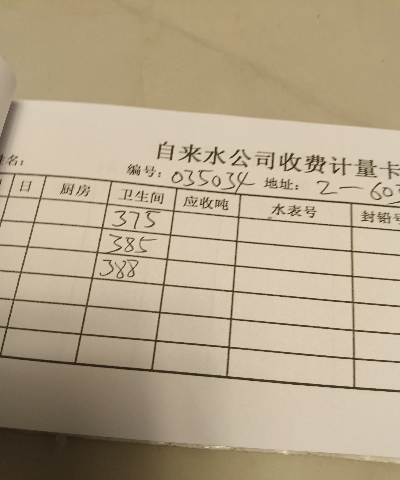 自来水公司收费计量卡
姓名: 编号: 035034 地址: 2-603
月 日 厨房 卫生间 应收吨 水表号 封铅号
375
385
388